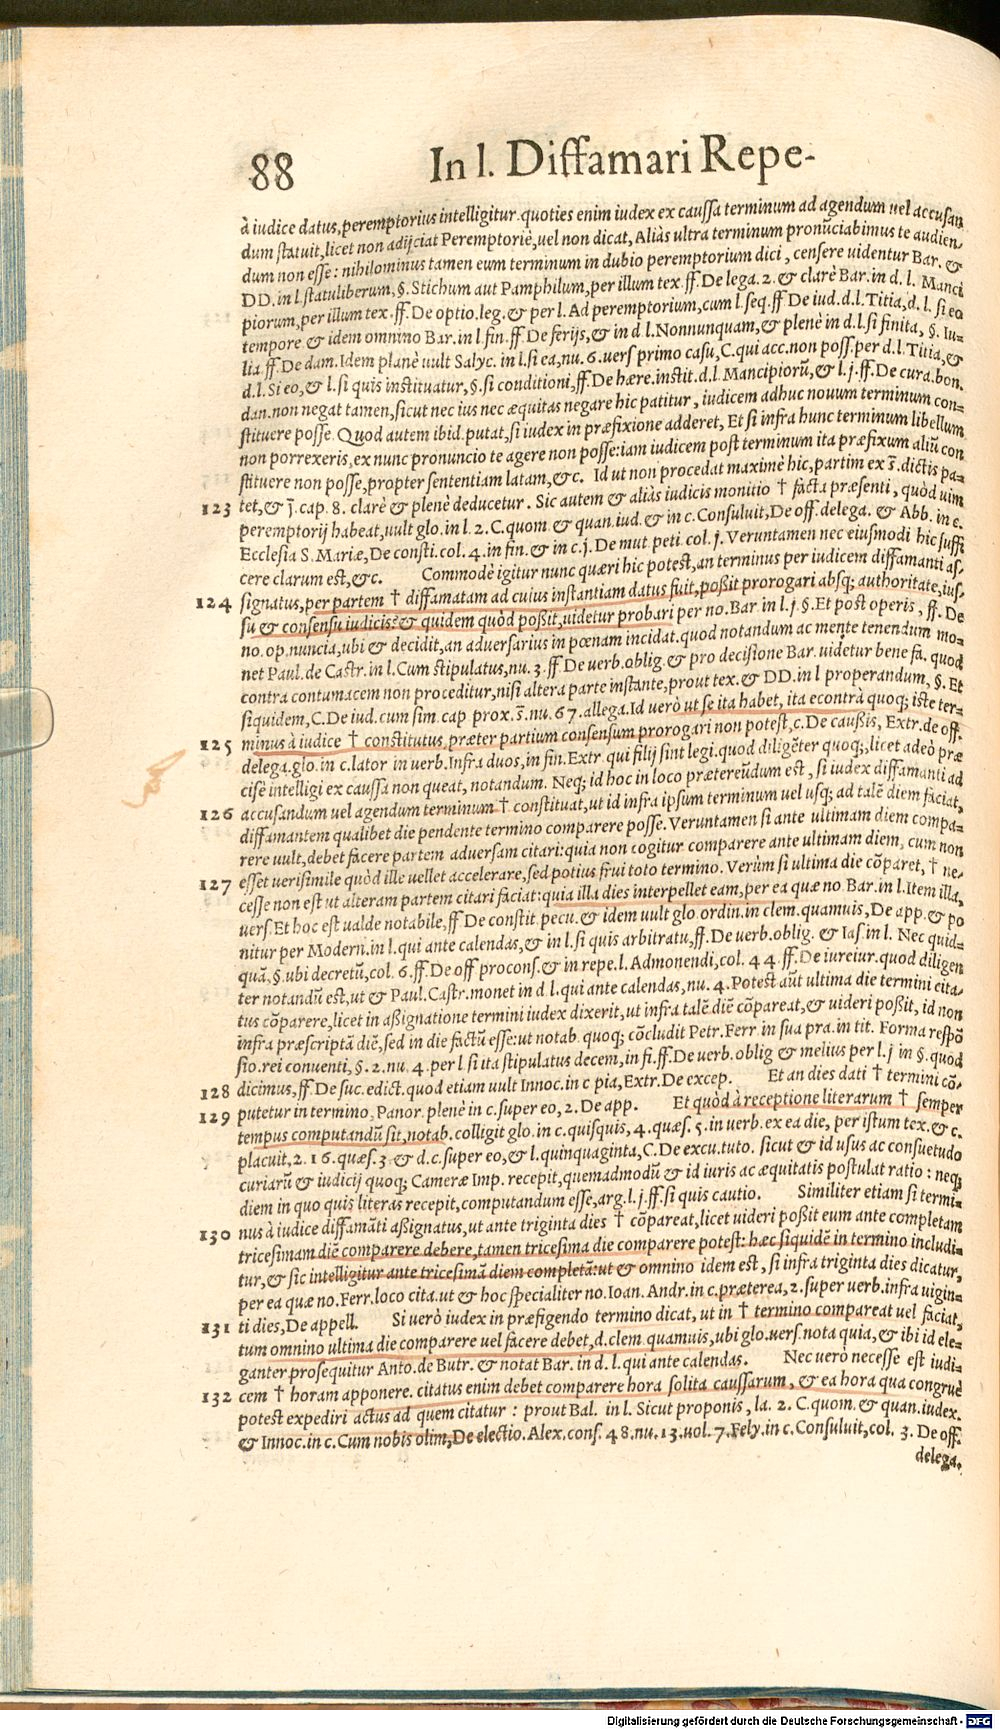 88 In l. Diffamari Repe-
à iudice datus, peremptorius intelligitur. quoties enim iudex ex caussa terminum ad agendum uel accusan
dum statuit, licet non adijciat Peremptoriè, uel non dicat, Aliàs ultra terminum pronūciabimus te audien-
dum non esse: nihilominus tamen eum terminum in dubio peremptorium dici, censere uidentur Bar. &
DD. in l. statuliberum, §. Stichum aut Pamphilum, per illum tex. ff. De lega. 2. & clarè Bar. in d. l. Manci
piorum, per illum tex. ff. De optio. leg. & per l. Ad peremptorium, cum l. seq. ff De iud. d. l. Titia, d. l. si eo
tempore. & idem omnino Bar. in l. fin. ff. De ferijs, & in d l. Nonnunquam, & plenè in d. l. si finita, §. Iu-
lia. ff. De dam. Idem planè uult Salyc. in l. si ea, nu. 6. uers primo casu, C. qui acc. non poss. per d. l. Titia, &
d. l. Si eo, & l. si quis instituatur, §. si conditioni, ff. De hære. instit. d. l. Mancipiorū, & l. j. ff. De cura. bon.
dan. non negat tamen, sicut nec ius nec æquitas negare hic patitur, iudicem adhuc nouum terminum con-
stituere posse. Quod autem ibid. putat, si iudex in præfixione adderet, Et si infra hunc terminum libellum
non porrexeris, ex nunc pronuncio te agere non posse: iam iudicem post terminum ita præfixum aliū con
stituere non posse, propter sententiam latam, &c. Id ut non procedat maximè hic, partim ex s̄. dictis pa-
123 tet, & j̄. cap. 8. clarè & plenè deducetur. Sic autem & aliàs iudicis monitio † facta præsenti, quòd uim
peremptorij habeat, uult glo. in l. 2. C. quom & quan. iud. & in c. Consuluit, De off. delega. & Abb. in c.
Ecclesia S. Mariæ, De consti. col. 4. in fin. & in c. j. De mut peti. col. j. Veruntamen nec eiusmodi hic suffi
cere clarum est, &c. Commodè igitur nunc quæri hic potest, an terminus per iudicem diffamanti as-
124 signatus, per partem † diffamatam ad cuius instantiam datus fuit, poßit prorogari absq; authoritate, ius-
su & consensu iudicis? & quidem quòd poßit, uidetur probari per no. Bar. in l. j. §. Et post operis, ff. De
no. op. nuncia, ubi & decidit, an aduersarius in pœnam incidat. quod notandum ac mente tenendum mo-
net Paul. de Castr. in l. Cum stipulatus, nu. 3. ff De uerb. oblig. & pro decisione Bar. uidetur bene fa. quod
contra contumacem non proceditur, nisi altera parte instante, prout tex. & DD. in l properandum, §. Et
siquidem, C. De iud. cum sim. cap prox. s̄. nu. 67. allega. Id uerò ut se ita habet, ita econtrà quoq; iste ter-
125 minus à iudice † constitutus, præter partium consensum prorogari non potest, c. De caußis, Extr. de off.
delega. glo. in c. lator in uerb. Infra duos, in fin. Extr. qui filij sint legi. quod diligēter quoq;, licet adeò præ
cisè intelligi ex caussa non queat, notandum. Neq; id hoc in loco prætereūdum est, si iudex diffamanti ad
126 accusandum uel agendum terminum † constituat, ut id infra ipsum terminum uel usq; ad talē diem faciat,
diffamantem qualibet die pendente termino comparere posse. Veruntamen si ante ultimam diem compa-
rere uult, debet facere partem aduersam citari: quia non cogitur comparere ante ultimam diem, cum non
127 esset uerisimile quòd ille uellet accelerare, sed potius frui toto termino. Verùm si ultima die cōparet, † ne-
cesse non est ut alteram partem citari faciat: quia illa dies interpellet eam, per ea quæ no. Bar. in l. Item illa,
uers. Et hoc est ualde notabile, ff De constit. pecu. & idem uult glo. ordin. in clem. quamuis, De app. & po
nitur per Modern. in l. qui ante calendas, & in l. si quis arbitratu, ff. De uerb. oblig. & Ias. in l. Nec quid-
quā, §. ubi decretū, col. 6. ff. De off procons. & in repe. l. Admonendi, col. 44. ff. De iureiur. quod diligen
ter notandū est, ut & Paul. Castr. monet in d l. qui ante calendas, nu. 4. Potest aūt ultima die termini cita-
tus cōparere, licet in aßignatione termini iudex dixerit, ut infra talē diē cōpareat, & uideri poßit, id non
infra præscriptā diē, sed in die factū esse: ut notab. quoq; cōcludit Petr. Ferr. in sua pra. in tit. Forma respō
sio. rei conuenti, §. 2. nu. 4. per l si ita stipulatus decem, in fi. ff. De uerb. oblig & melius per l. j in §. quod
128 dicimus, ff. De suc. edict. quod etiam uult Innoc. in c pia, Extr. De excep. Et an dies dati † termini cō-
129 putetur in termino, Panor. plenè in c. super eo, 2. De app. Et quòd à receptione literarum † semper
tempus computandū sit, notab. colligit glo. in c. quisquis, 4. quæs. 5. in uerb. ex ea die, per istum tex. & c.
placuit, 2. 16. quæs. 3 & d. c. super eo, & l. quinquaginta, C. De excu. tuto. sicut & id usus ac consuetudo
curiarū & iudicij quoq; Cameræ Imp. recepit, quemadmodū & id iuris ac æquitatis postulat ratio: neq;
diem in quo quis literas recepit, computandum esse, arg. l. j. ff. si quis cautio. Similiter etiam si termi-
130 nus à iudice diffamāti aßignatus, ut ante triginta dies † cōpareat, licet uideri poßit eum ante completam
tricesimam diē comparere debere, tamen tricesima die comparere potest: hæc siquidē in termino includi-
tur, & sic intelligitur ante tricesimā diem completā: ut & omnino idem est, si infra triginta dies dicatur,
per ea quæ no. Ferr. loco cita. ut & hoc specialiter no. Ioan. Andr. in c. præterea, 2. super uerb. infra uigin-
131 ti dies, De appell. Si uerò iudex in præfigendo termino dicat, ut in † termino compareat uel faciat,
tum omnino ultima die comparere uel facere debet, d. clem. quamuis, ubi glo. uers. nota quia, & ibi id ele-
ganter prosequitur Anto. de Butr. & notat Bar. in d. l. qui ante calendas. Nec uerò necesse est iudi-
132 cem † horam apponere. citatus enim debet comparere hora solita caussarum, & ea hora qua congruè
potest expediri actus ad quem citatur: prout Bal. in l. Sicut proponis, la. 2. C. quom. & quan. iudex.
& Innoc. in c. Cum nobis olim, De electio. Alex. cons. 48. nu. 13. uol. 7. Fely. in c. Consuluit, col. 3. De off.
delega.
Digitalisierung gefördert durch die Deutsche Forschungsgemeinschaft - DFG